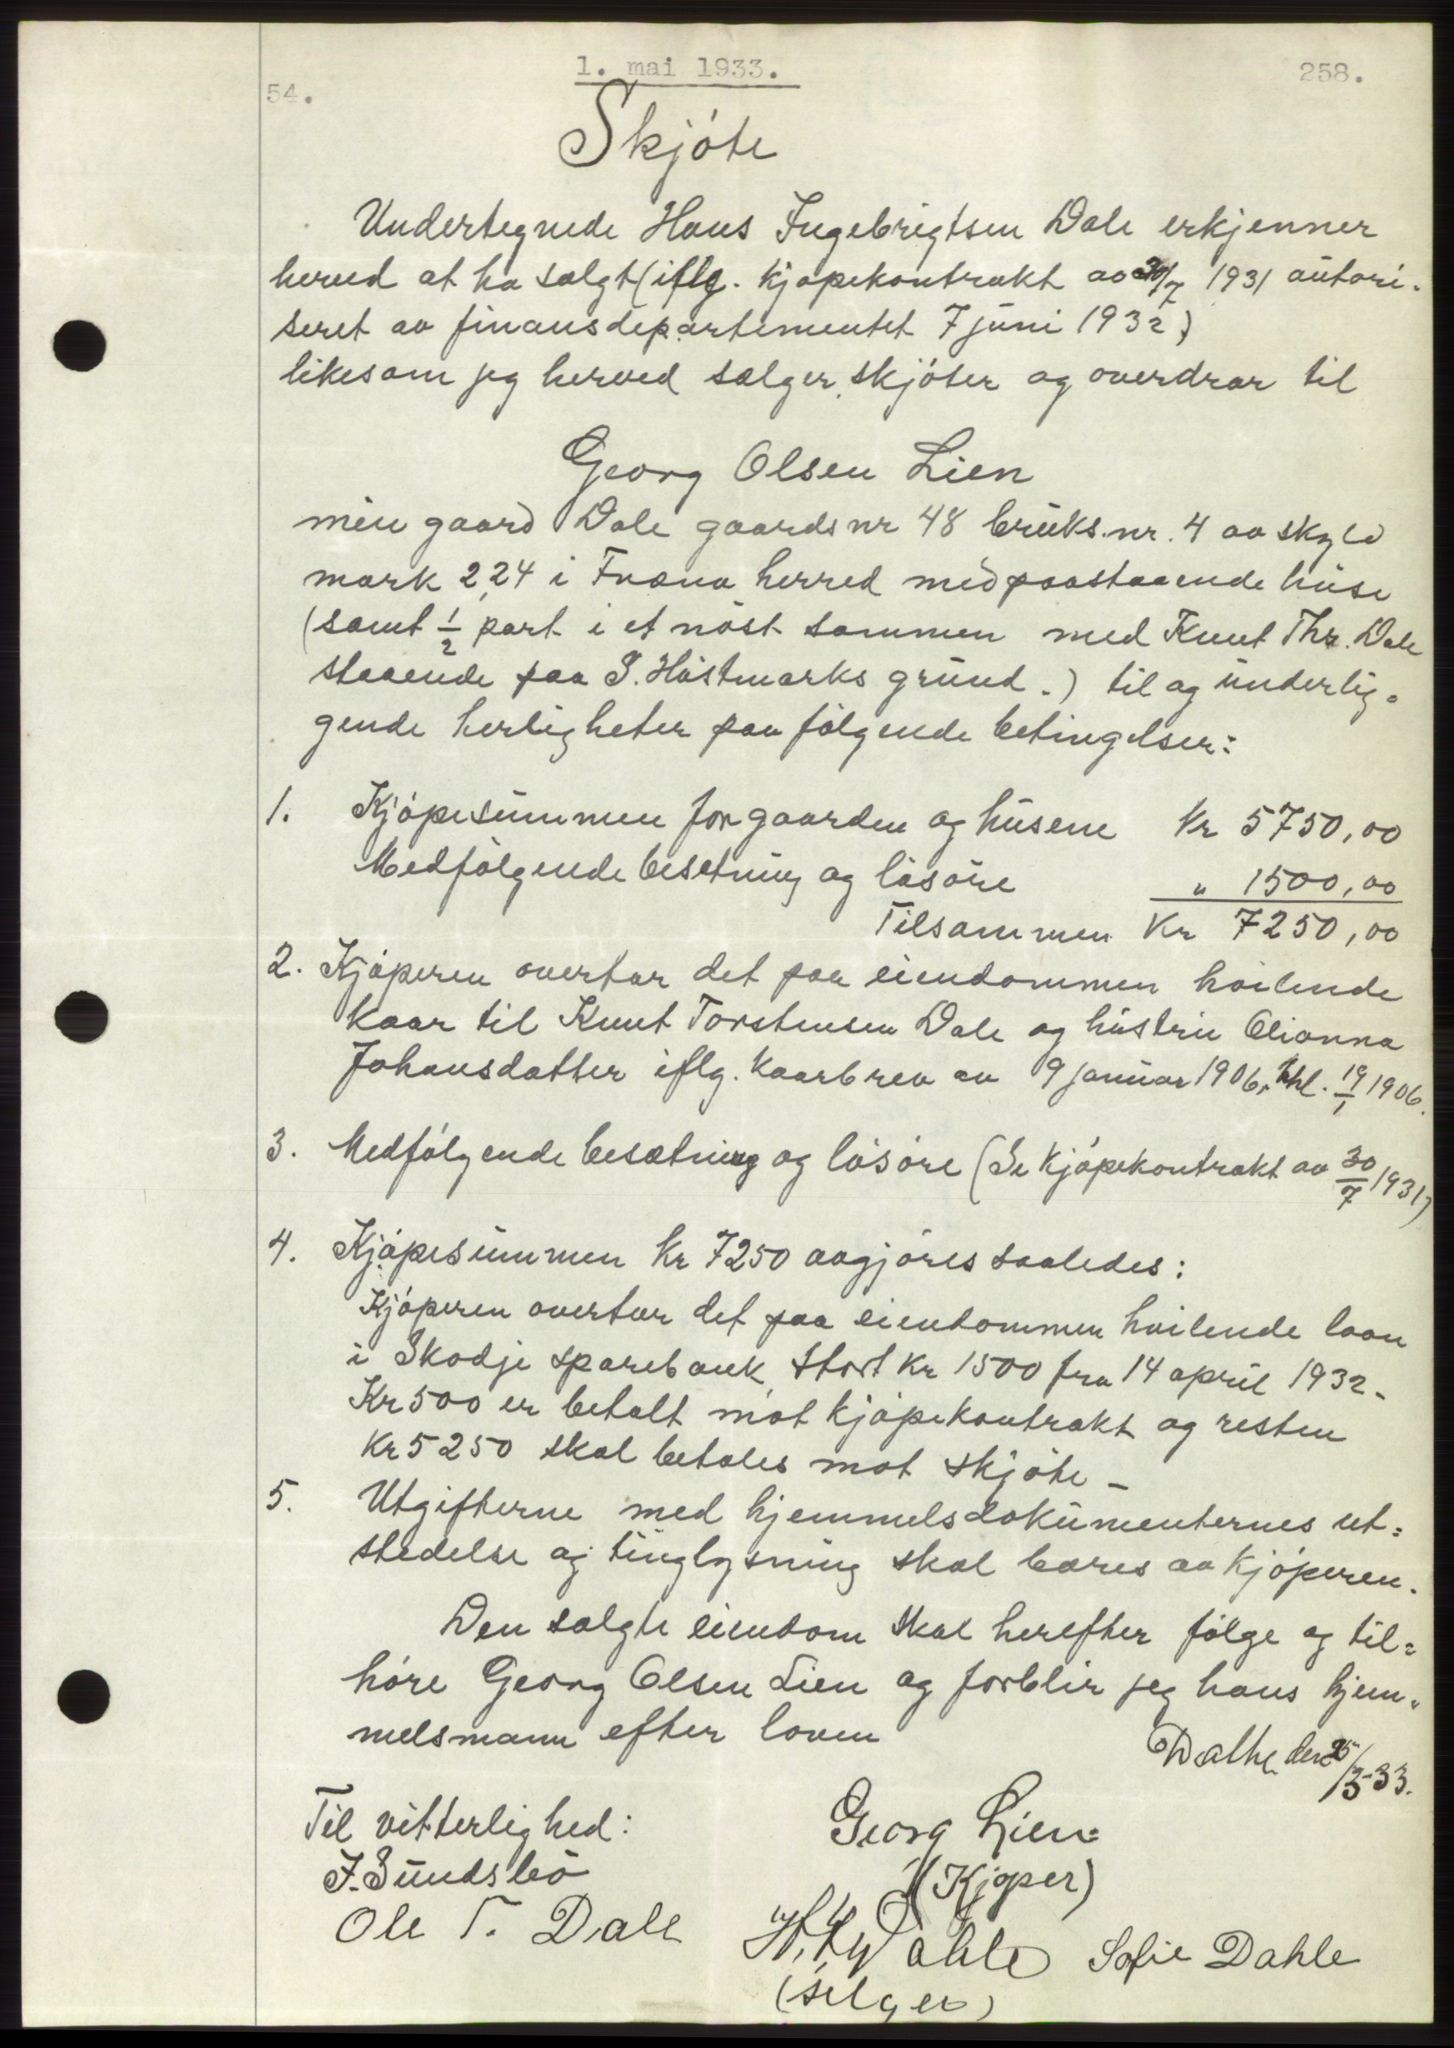 1. mai 1933.
258.
54.
Skjóte
Undertegnede Hans Ingebrigtsen Dale erkjenner
herved at ha sælgt (iflg. kjøpekontrakt av 30/7 1931 autori-
seret av finansdepartementet 7 juni 1932)
likesom jeg herved sælger, skjóter og overdrar til
Georg Olsen Lien
min gaard Dale gaardsnr 48 bruks.nr. 4 av skyld
mark 2,24 i Fræna herred med paastaaende huse
(samt 1/2 part i et nöst sammen med Knut Thr. Dale
staaende paa P. Hästmarks grund.) til og underlig-
gende herligheter paa fölgende betingelser:
1. Kjópesummen for gaarden og husene Kr 5750,00
Medfölgende besetning og lösöre " 1500,00
Tilsammen Kr 7250,00
2. Kjöperen overtar det paa eiendommen hvilende
kaar til Knut Torstensen Dale og hustru Olianna
Johansdatter iflg. kaarbrev av 9 januar 1906, thl. 19/1 1906.
3. Medfólgende besætning og lösöre (Se kjöpekontrakt av 30/7 1931)
4. Kjöpesummen kr 7250 avgjöres saaledes:
Kjóperen overtar det paa eiendommen hvilende laan
i Skodje sparebank, stort kr 1500 fra 14 april 1932-
Kr 500 er betalt mot kjöpekontrakt og resten
Kr 5250 skal betales mot skjöte -
5. Utgifterne med hjemmelsdokumenternes ut=
stedelse og tinglysning skal bæres av kjóperen.
Den sælgte eiendom skal herefter fölge og til=
höre Georg Olsen Lien og forblir jeg hans hjem-
melsmann efter loven
Dalhe den 25/3-33.
Til vitterlighed:
Georg Lien=
J. Sundsbö
(Kjøper)
Ole T. Dale
H. Dahle Sofie Dahle
(selger)